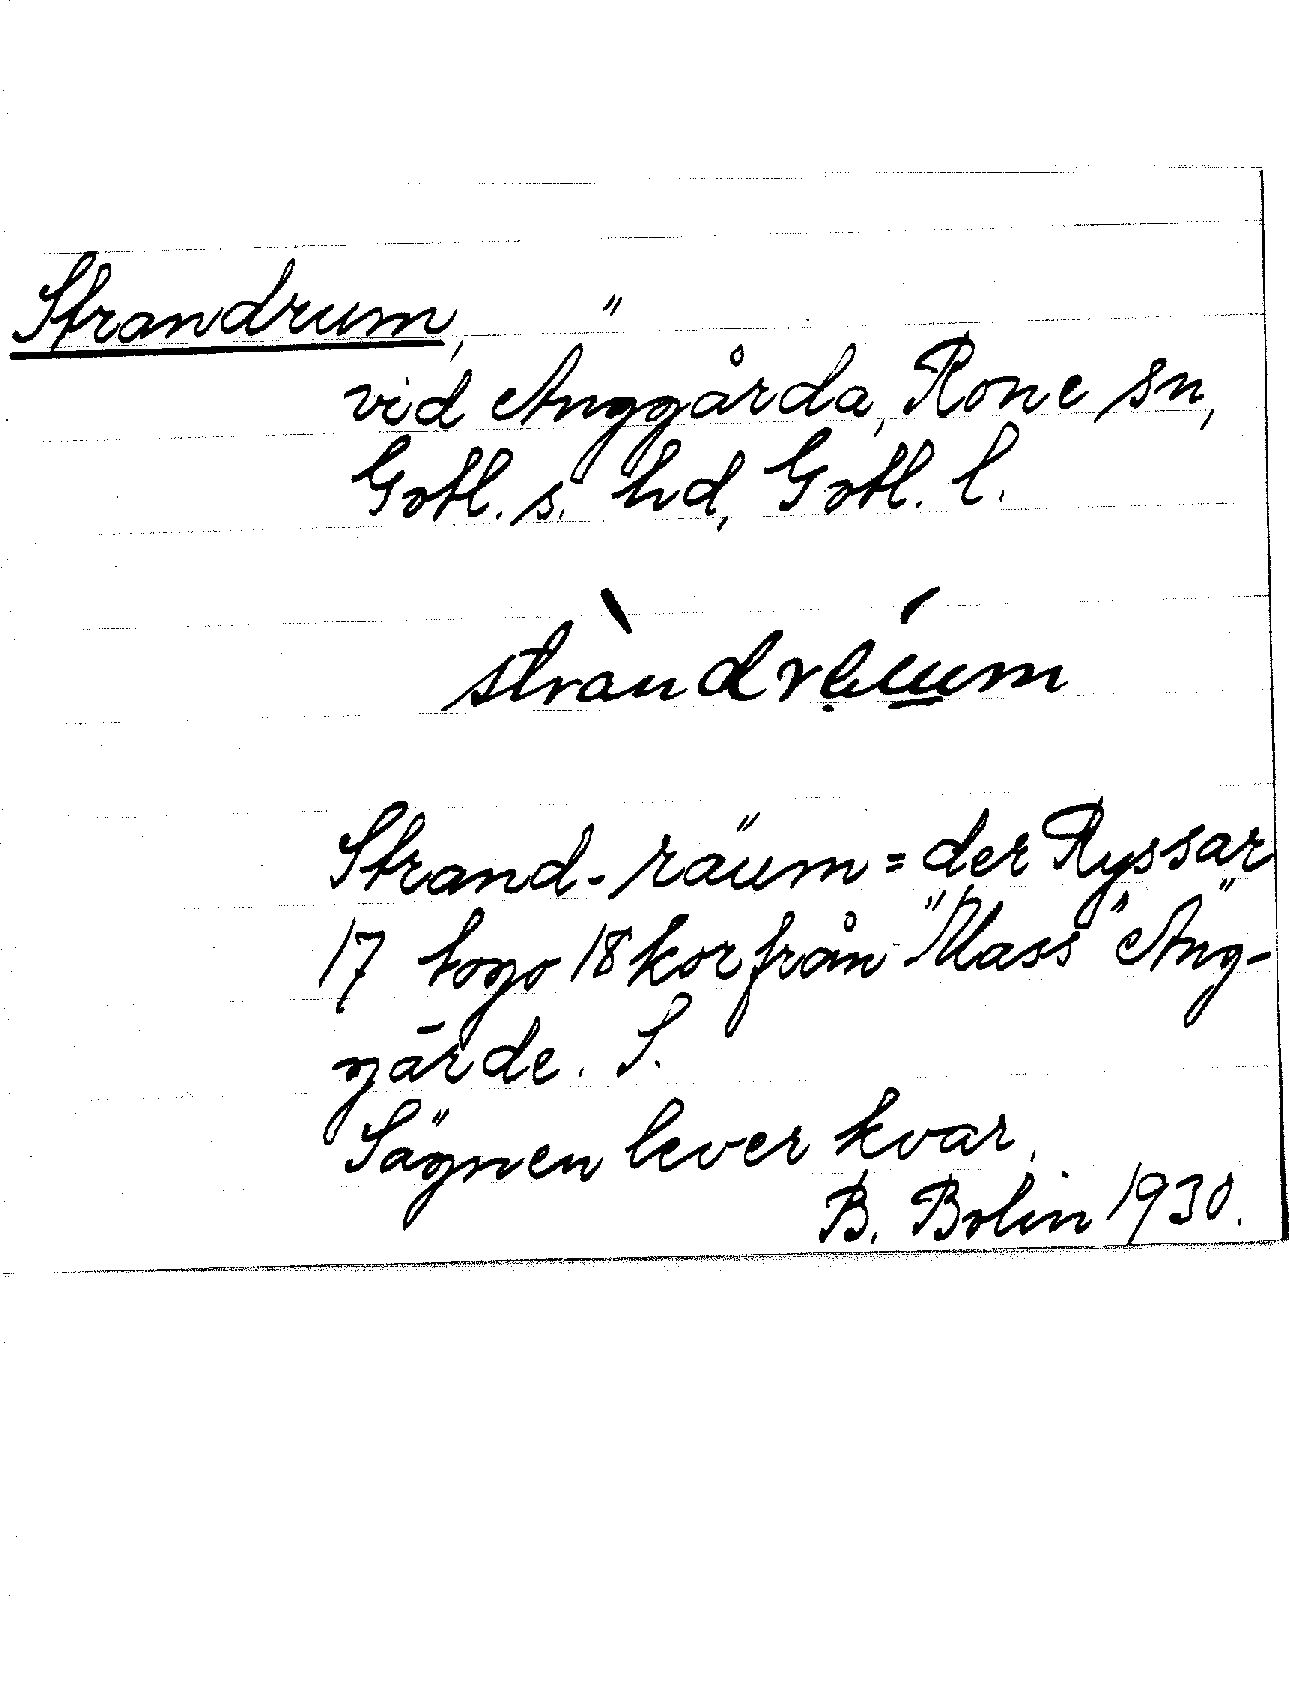 Strandrum, "
vid Anggårda, Rone sn,
Gotl. s. hd, Gotl. l.
Strand-räum = der Ryssar
17 togo 18 kor från "Mass" Ang-
gärde. S.
Sägnen lever kvar.
B. Bolin 1930.